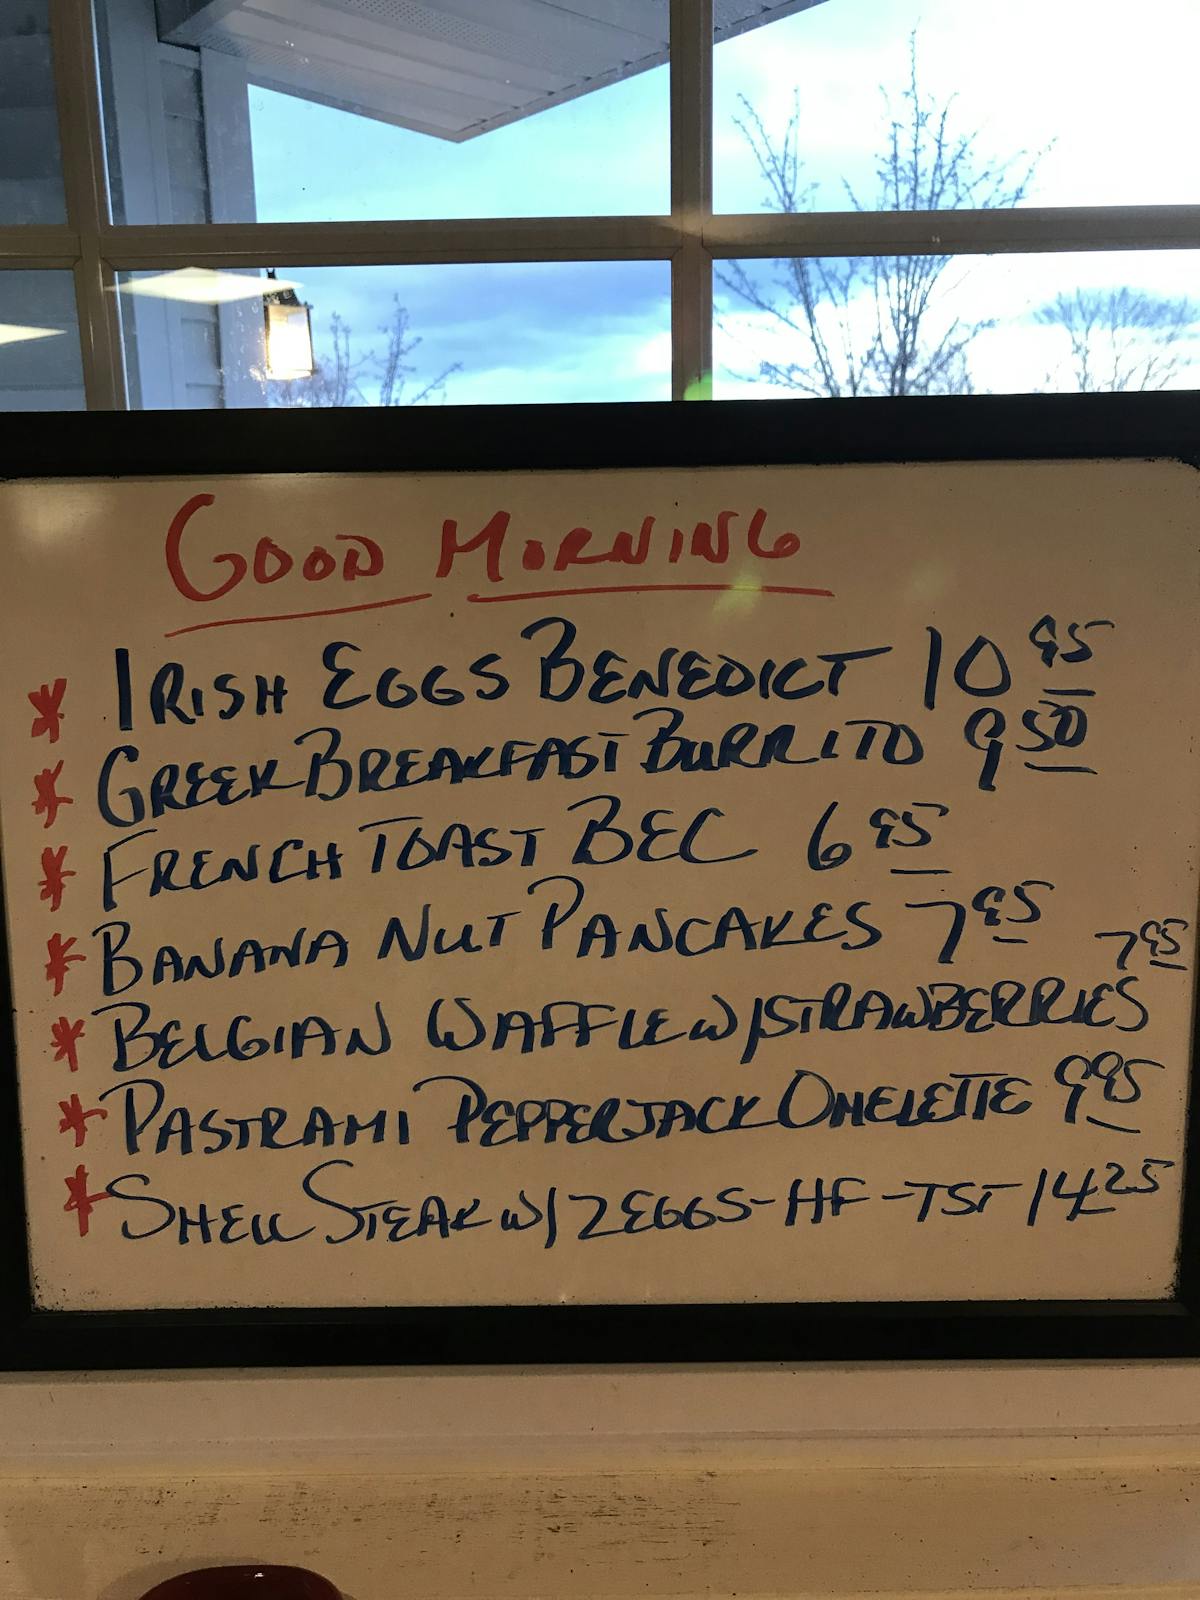 GOOD MORNING
* IRISH EGGS BENEDICT 10 95
* GREEK BREAKFAST BURRITO 9 50
* FRENCH TOAST BEC 6 95
* BANANA NUT PANCAKES 7 95
7 95
* BELGIAN WAFFLE W/STRAWBERRIES
* PASTRAMI PEPPERJACK OMELETTE 9 95
* SHELL STEAK W/ 2 EGGS-HF-TST 14 25